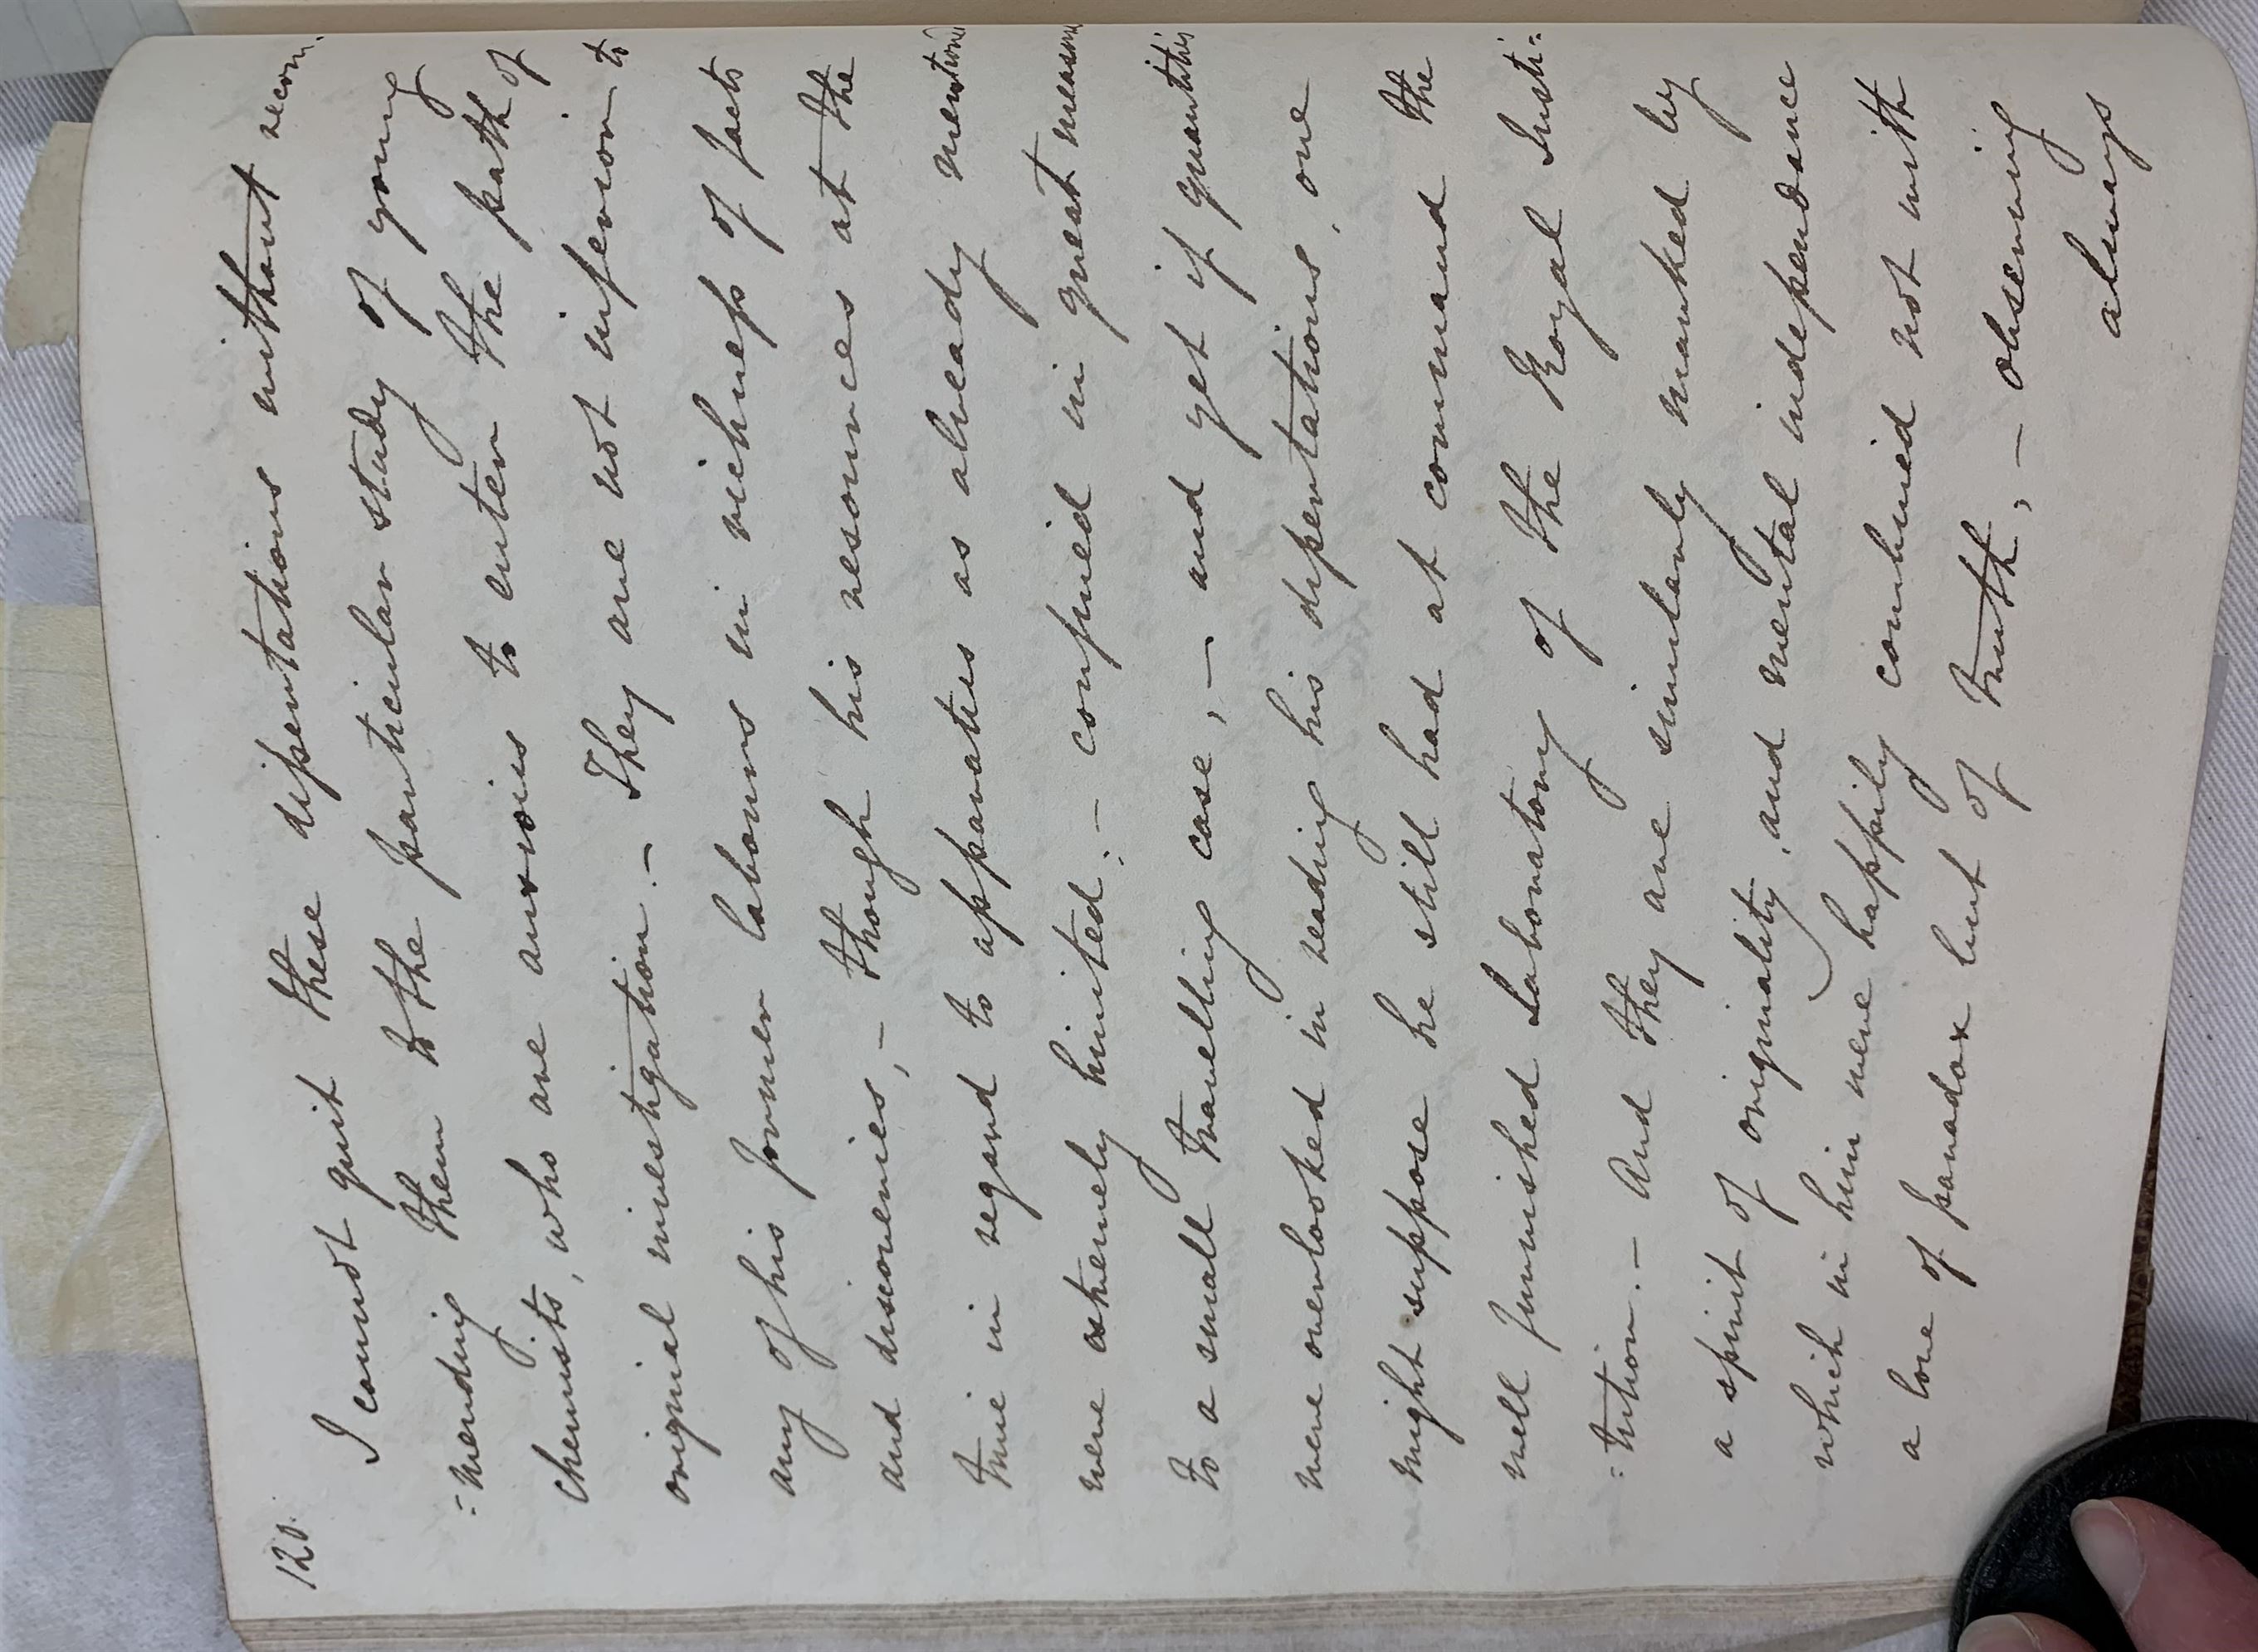 120.
I cannot quit these dissertations without recom.
=mending them to the particular study of young
chemists, who are anxious to enter the path of
original investigation. – They are not inferior to
any of his former labours in richness of facts
and discoveries, – though his resources at the
time in regard to apparatus as already mention'd
were extremely limited: – confined in great measure
to a small travelling case, – and yet if quantities
were overlooked in reading his dissertations, one
might suppose he still had at command the
well furnished Laboratory of the Royal Insti=
=tution. – And they are similarly marked by
a spirit of originality, and mental independance
which in him were happily combined not with
a love of paradox but of truth, – observing
always